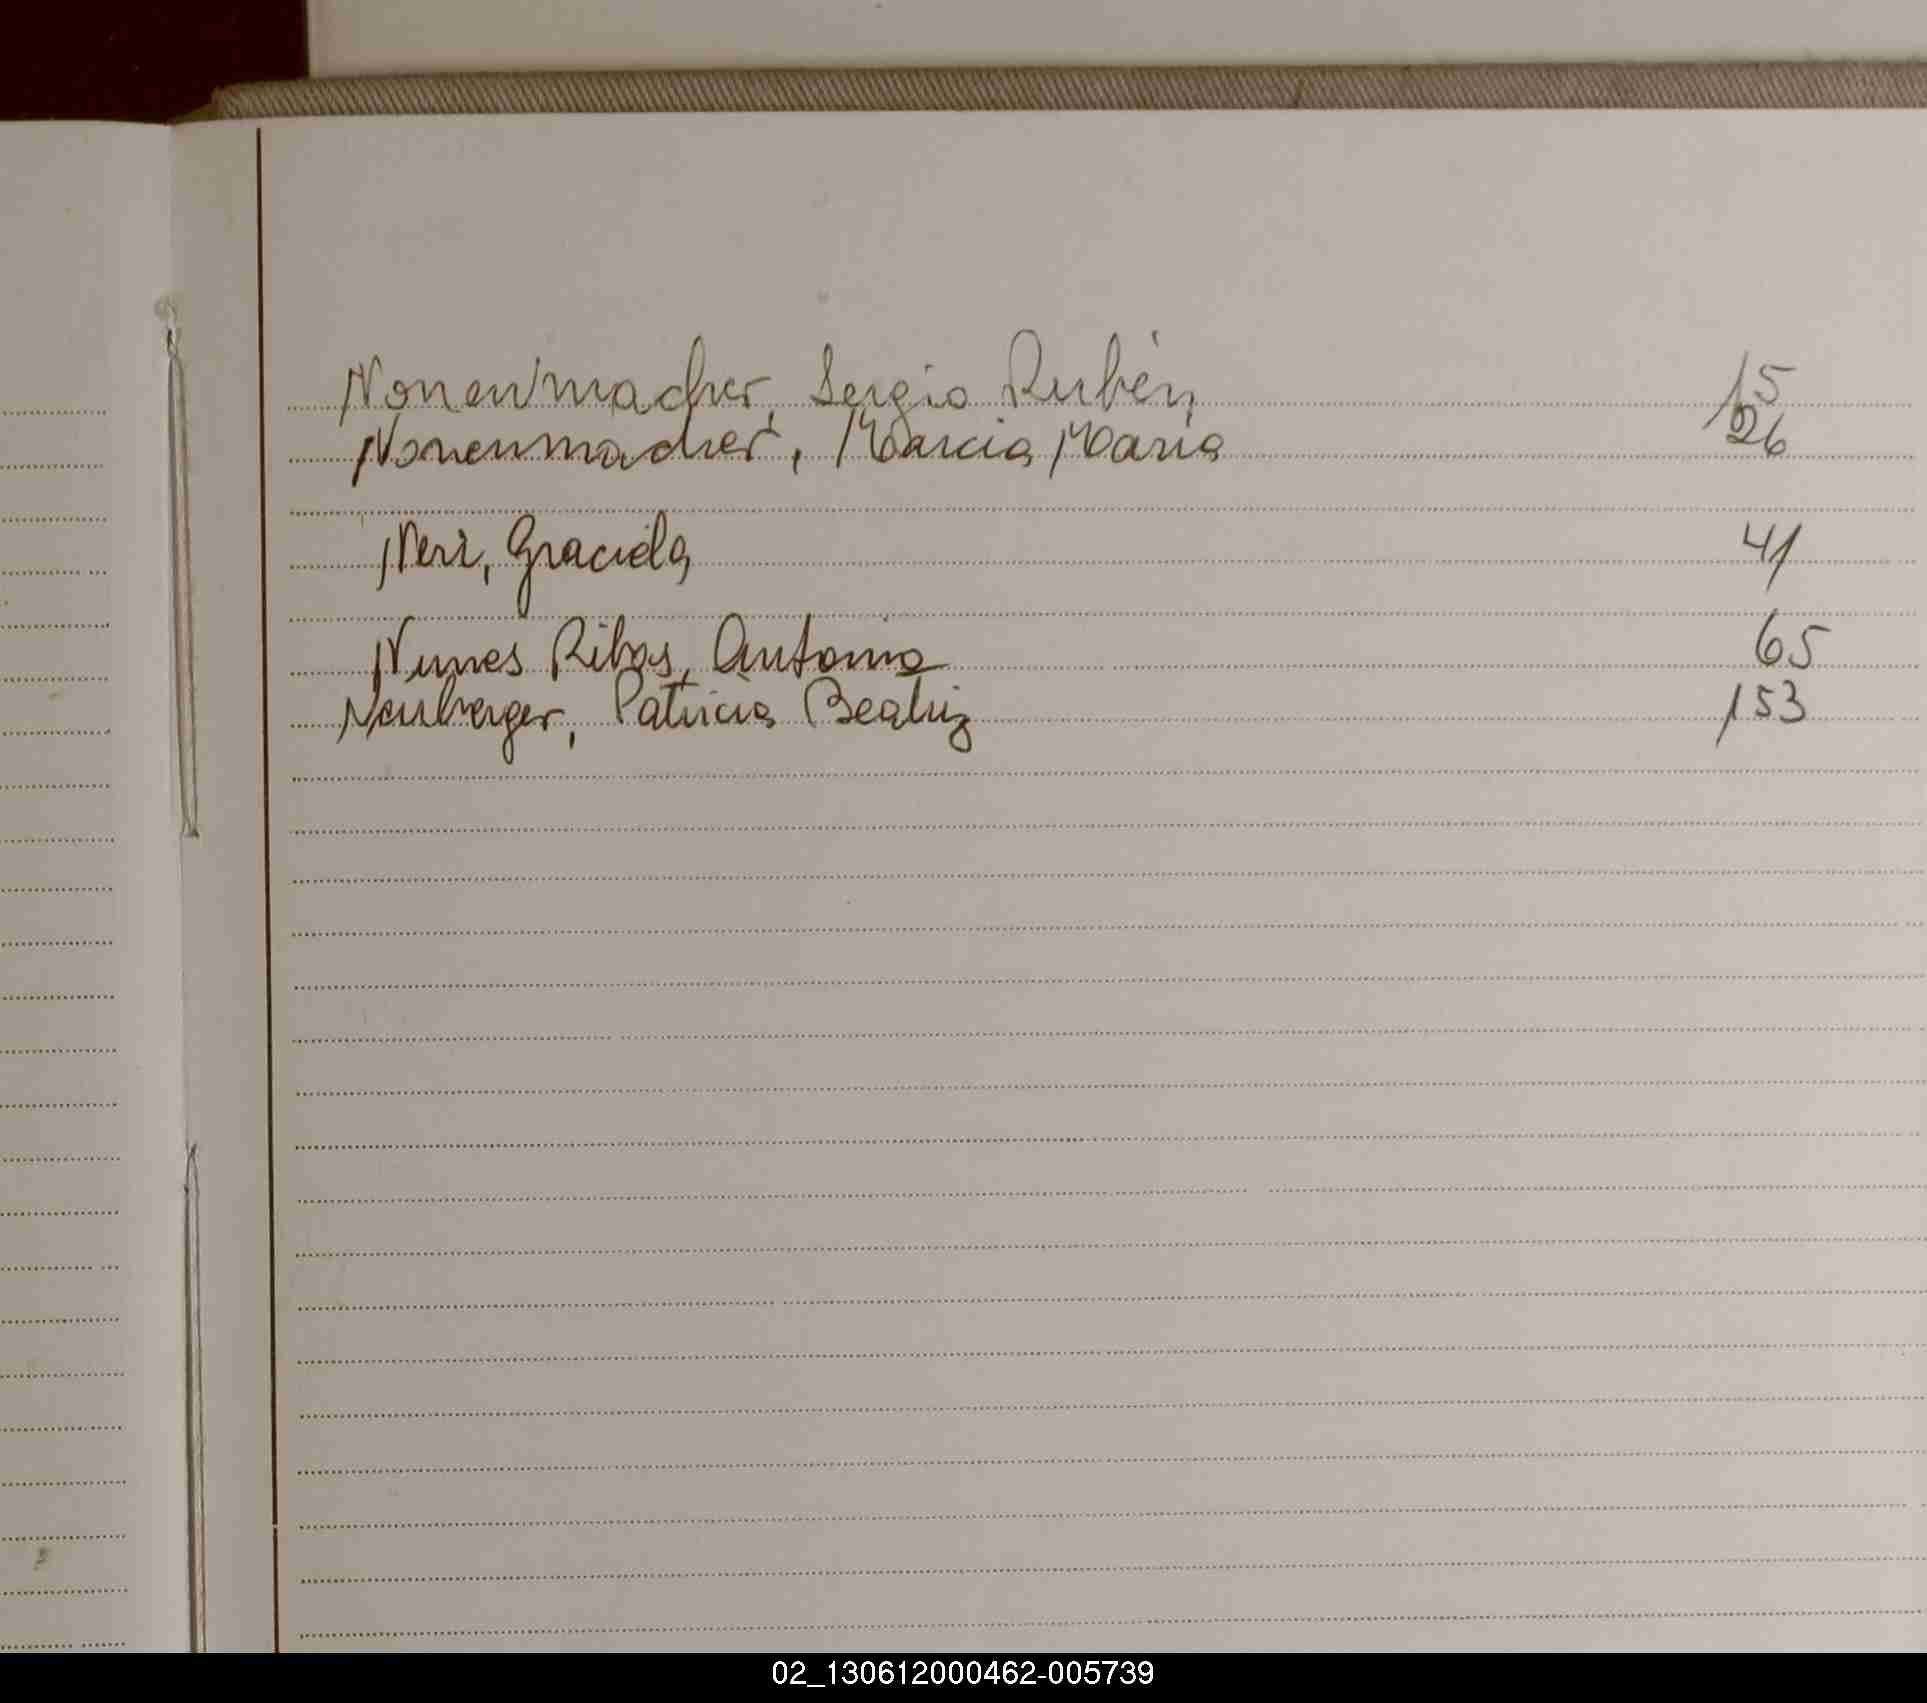 Nonenmacher, Sergio Rubén, 15
Nonenmacher, Marcia Maria 26
Neri, Graciela 41
Nunes Ribas, Antonio 65
Neuberger, Patricia Beatriz 153
02_130612000462-005739